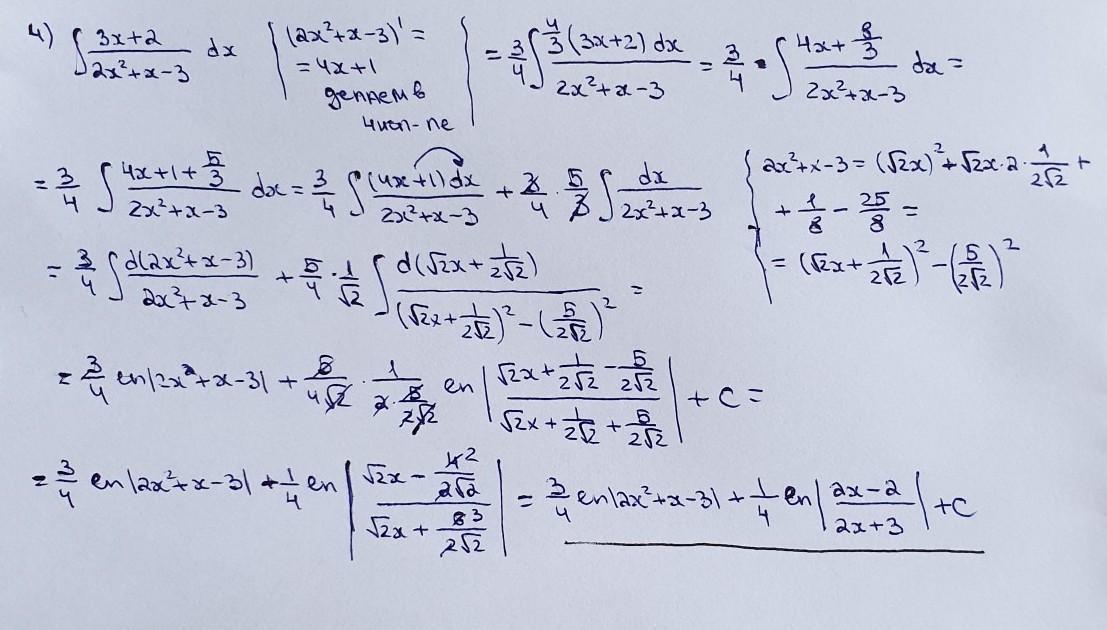 4) ∫ (3x+2)/(2x²+x-3) dx { (2x²+x-3)' = = 4x+1 делаем в числ-ле } = 3/4 ∫ (4/3 (3x+2) dx)/(2x²+x-3) = 3/4 · ∫ (4x + 8/3)/(2x²+x-3) dx =
= 3/4 ∫ (4x+1+5/3)/(2x²+x-3) dx = 3/4 ∫ ((4x+1)dx)/(2x²+x-3) + 3/4 · 5/3 ∫ dx/(2x²+x-3) { 2x²+x-3 = (√2x)² + √2x·2·1/(2√2) + + 1/8 - 25/8 = = (√2x + 1/(2√2))² - (5/(2√2))²
= 3/4 ∫ d(2x²+x-3)/(2x²+x-3) + 5/4 · 1/√2 ∫ d(√2x + 1/(2√2))/((√2x + 1/(2√2))² - (5/(2√2))²) =
= 3/4 ln|2x²+x-3| + 5/(4√2) · 1/(2·5/(2√2)) ln |(√2x + 1/(2√2) - 5/(2√2))/(√2x + 1/(2√2) + 5/(2√2))| + C =
= 3/4 ln|2x²+x-3| + 1/4 ln |(√2x - 4/(2√2))/(√2x + 6/(2√2))| = 3/4 ln|2x²+x-3| + 1/4 ln |(2x-2)/(2x+3)| + C